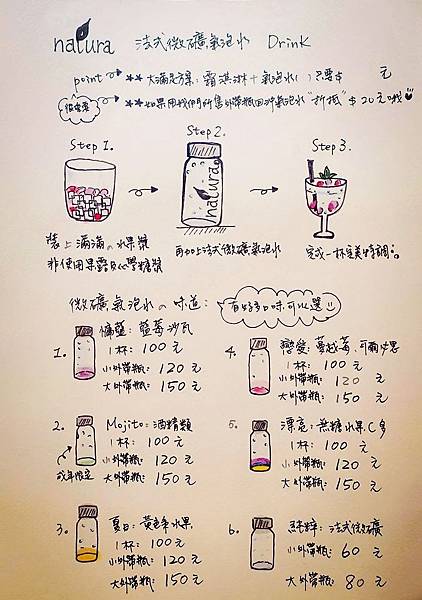 natura 法式微礦氣泡水 Drink
point → ** 大滿足方案: 霜淇淋+氣泡水( )只要$ 元
很重要 → ** 如果用我們所售外帶瓶回沖氣泡水"折抵"$20元哦
Step 1. Step 2. Step 3.
natura
裝上滿滿の水果漿 再加上法式微礦氣泡水 完成一杯完美特調。
非使用果露及化學糖漿
微礦氣泡水の味道: 有好多口味可以選
1. 慵藍: 藍莓沙瓦
1杯: 100元
小外帶瓶: 120元
大外帶瓶: 150元
2. Mojito: 酒精類
1杯: 100元
小外帶瓶: 120元
成年限定 大外帶瓶: 150元
3. 夏日: 黃色系水果
1杯: 100元
小外帶瓶: 120元
大外帶瓶: 150元
4. 戀愛: 蔓越莓、可爾必思
1杯: 100元
小外帶瓶: 120元
大外帶瓶: 150元
5. 漂亮: 無糖水果C多
1杯: 100元
小外帶瓶: 120元
大外帶瓶: 150元
6. 純粹: 法式微礦
小外帶瓶: 60元
大外帶瓶: 80元